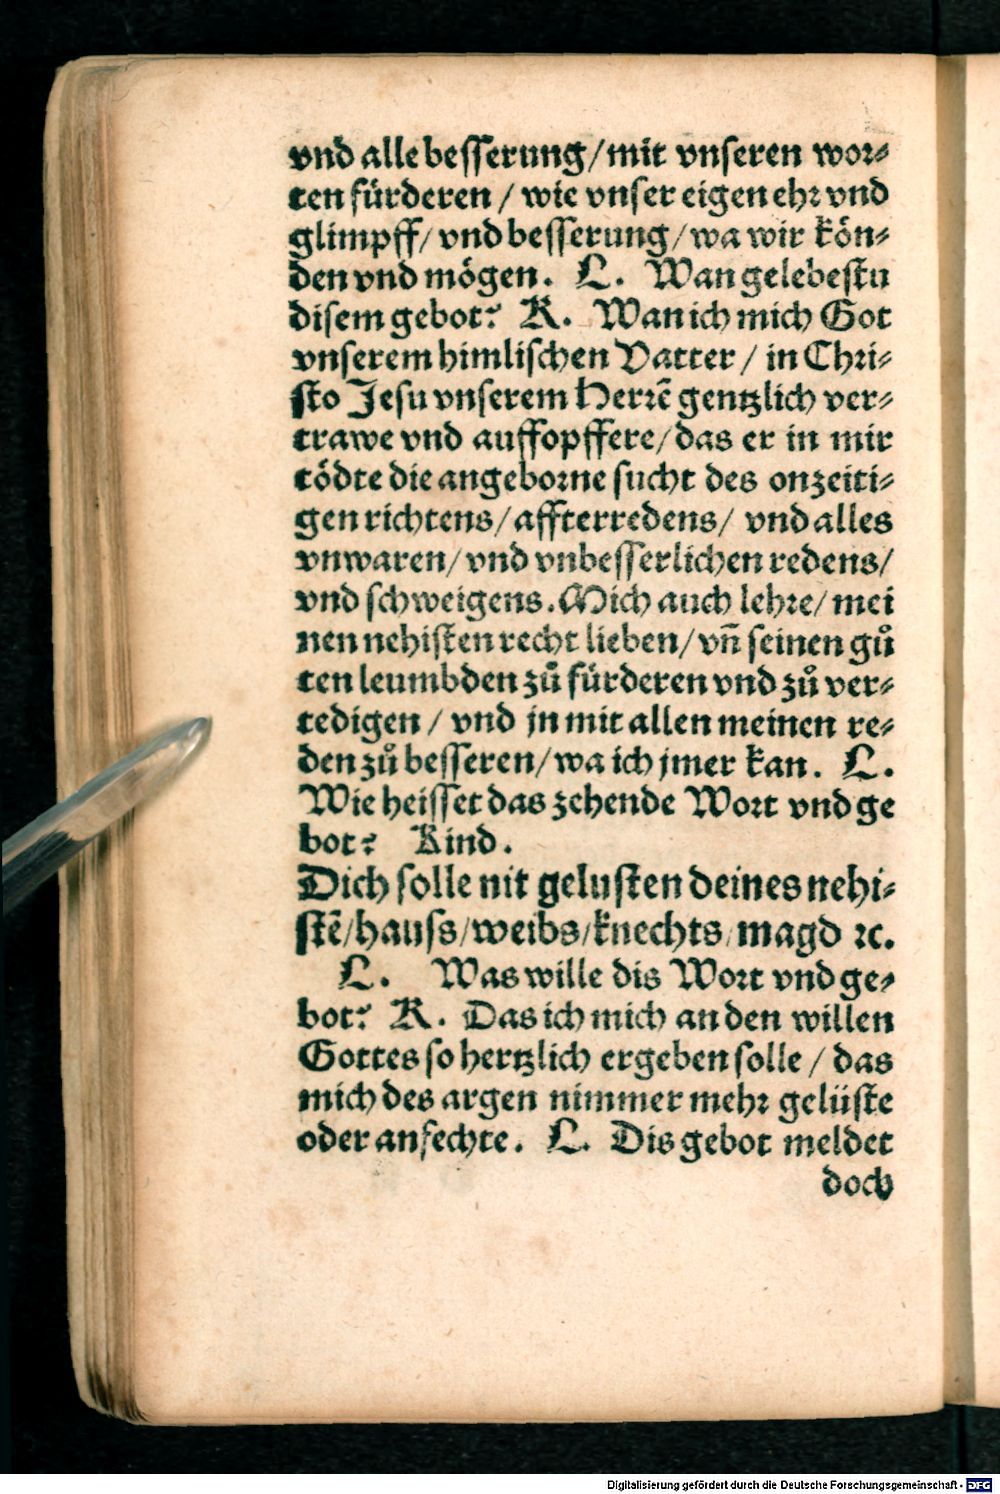 vnd alle besserung/mit vnseren wor⸗
ten fürderen / wie vnser eigen ehr vnd
glimpff/ vnd besserung/wa wir kön⸗
den vnd mögen. L. Wan gelebestu
disem gebot? K. Wan ich mich Got
vnserem himlischen Vatter / in Chri⸗
sto Jesu vnserem Herrē gentzlich ver⸗
trawe vnd auffopffere/das er in mir
tödte die angeborne sucht des onzeiti⸗
gen richtens/affterredens/ vnd alles
vnwaren/vnd vnbesserlichen redens/
vnd schweigens. Mich auch lehre/ mei
nen nehisten recht lieben/ vn̄ seinen gů
ten leumbden zů fürderen vnd zů ver⸗
tedigen / vnd jn mit allen meinen re⸗
den zů besseren/wa ich jmer kan. L.
Wie heisset das zehende Wort vnd ge
bot? Kind.
Dich solle nit gelusten deines nehi⸗
stē/hauss/weibs/knechts/magd ꝛc.
L. Was wille dis Wort vnd ge⸗
bot? K. Das ich mich an den willen
Gottes so hertzlich ergeben solle / das
mich des argen nimmer mehr gelüste
oder anfechte. L. Dis gebot meldet
doch
Digitalisierung gefördert durch die Deutsche Forschungsgemeinschaft - DFG